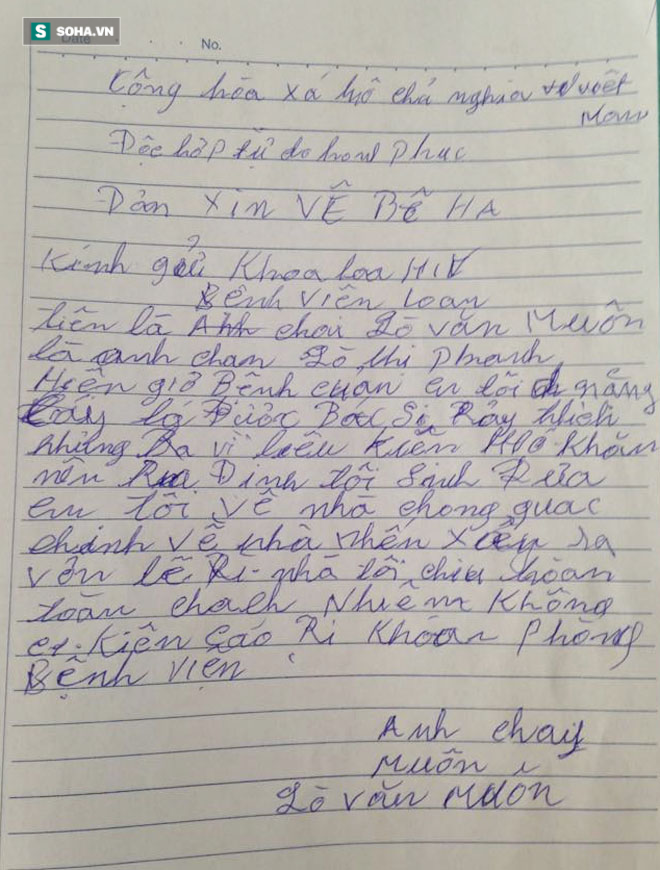 SOHA.VN
Date
No.
Cộng hòa xá hô chủ nghia việt
Man
Độc hâp tự do hanh Phuc
Đản Xin VỄ BỄ HA
Kính gửi Khoa loa HIV
Bênh viên loan
tiên là Anh chai Lò văn Muôn
là anh chan Lò thi phanh
Hiên giờ Bệnh cuan em tôi nặng
lấy là Được Bac Sĩ Rảy thich
nhưng Ba vì liêu kiên Hoc Khăn
nên Rua Đinh tôi Sinh Rửa
em tôi về nhà chong quac
chinh về nhà nhến xiểy ra
vấn lễ Ri nhà tôi chiu hoan
toàn chach Nhiêm Không
Kiên cáo Ri Khoan phòng
Bệnh Viện
Anh chay
Muôn
Lò văn Muôn